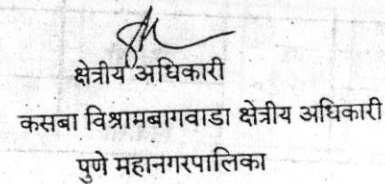 क्षेत्रीय अधिकारी
कसबा विश्रामबागवाडा क्षेत्रीय अधिकारी
पुणे महानगरपालिका